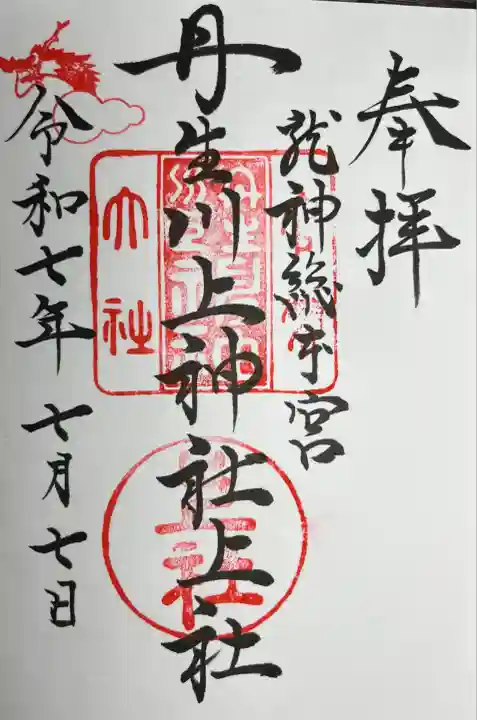 奉拝
龍神総本宮
丹生川上神社上社
令和七年 七月七日
大社